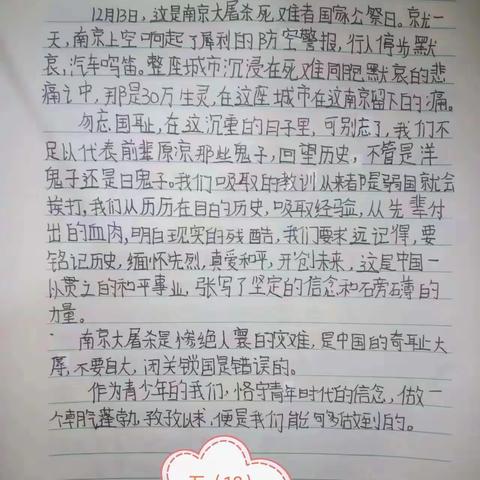 12月13日,这是南京大屠杀死难者国家公祭日。京尤一
天,南京上空响起了犀利的防空警报,行人停步默
哀,汽车鸣笛。整座城市沉浸在死难同胞默哀的悲
痛之中,那是30万生灵,在这座城市在这南京留下的痛。
勿忘国耻,在这沉重的日子里,可别忘了,我们不
足以代表前辈原凉那些鬼子,回望历史,不管是洋
鬼子还是日鬼子。我们吸取的教训从来都是弱国就会
挨打,我们从历历在目的历史,吸取经验,从先辈付
出的血肉,明白现实的残酷,我们要永远记得,要
铭记历史,缅怀先烈,真爱和平,开创未来,这是中国一
以贯之的和平事业,张写了坚定的信念和磅礴的
力量。
南京大屠杀是惨绝人寰的灾难,是中国的奇耻大
辱,不要自大,闭关锁国是错误的。
作为青少年的我们,恪守青年时代的信念,做一
个朝气蓬勃,孜孜以求,便是我们能够做到的。
五(12)